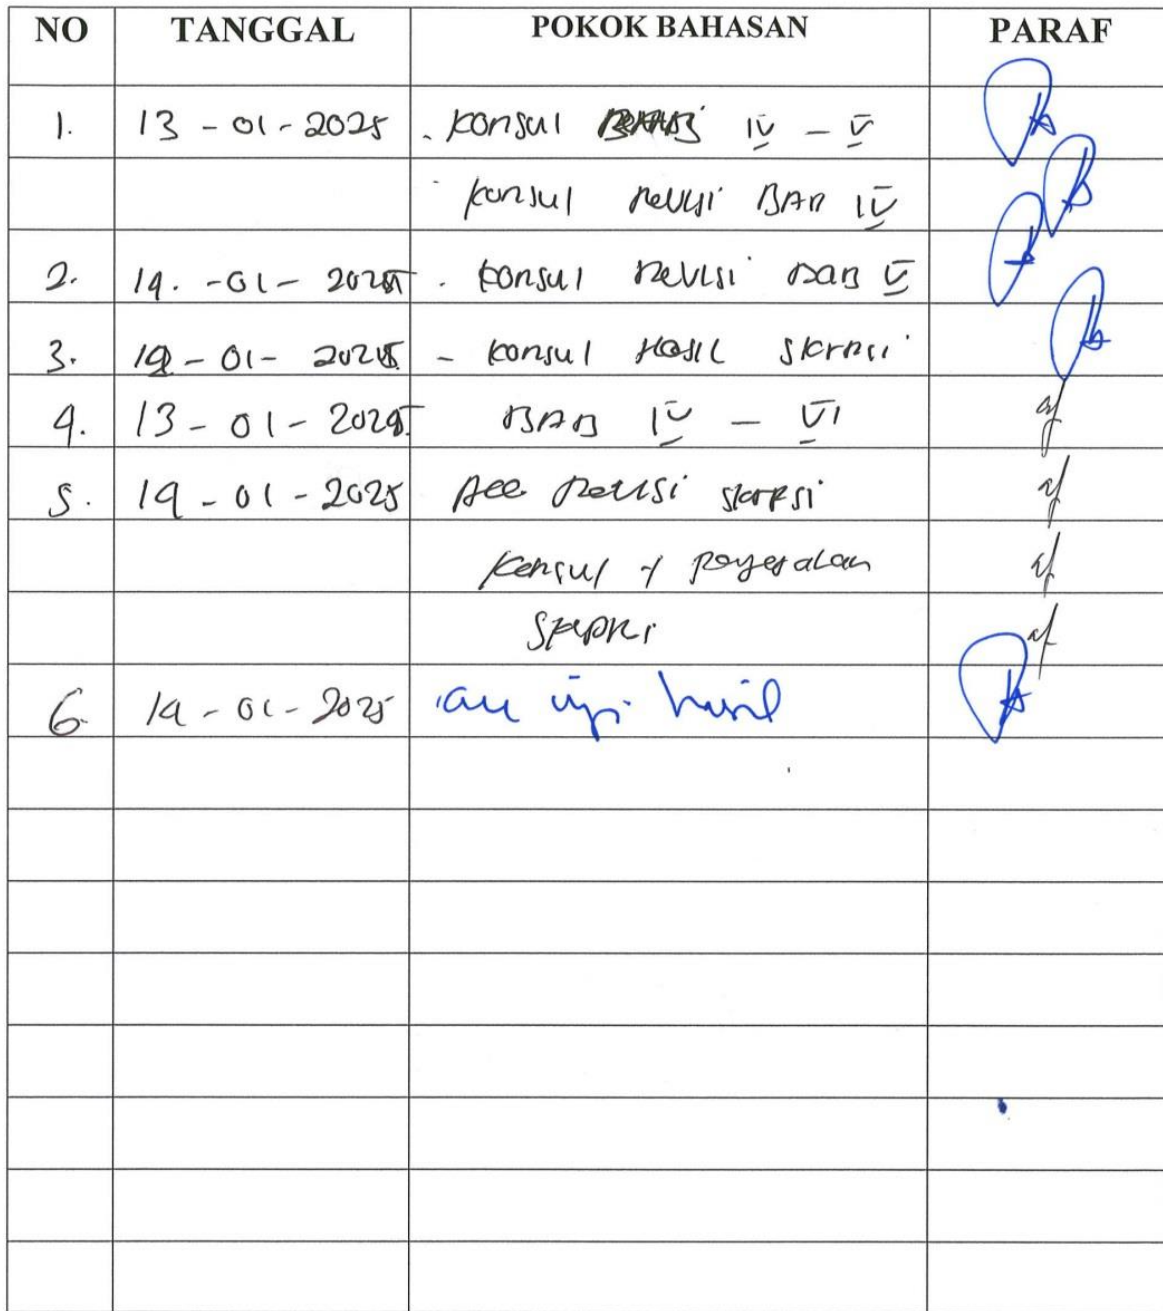 NO TANGGAL POKOK BAHASAN PARAF
1. 13 - 01 - 2025 . Konsul IV - V
- Konsul Revisi BAB IV
2. 14. - 01 - 2025 . Konsul Revisi BAB V
3. - 01 - 2025 - Konsul Hasil Skripsi
4. 13 - 01 - 2025 BAB IV - VI
5. 14 - 01 - 2025 Acc Revisi Skripsi
Konsul
6. 14 - 01 - 2025 acc uji hasil